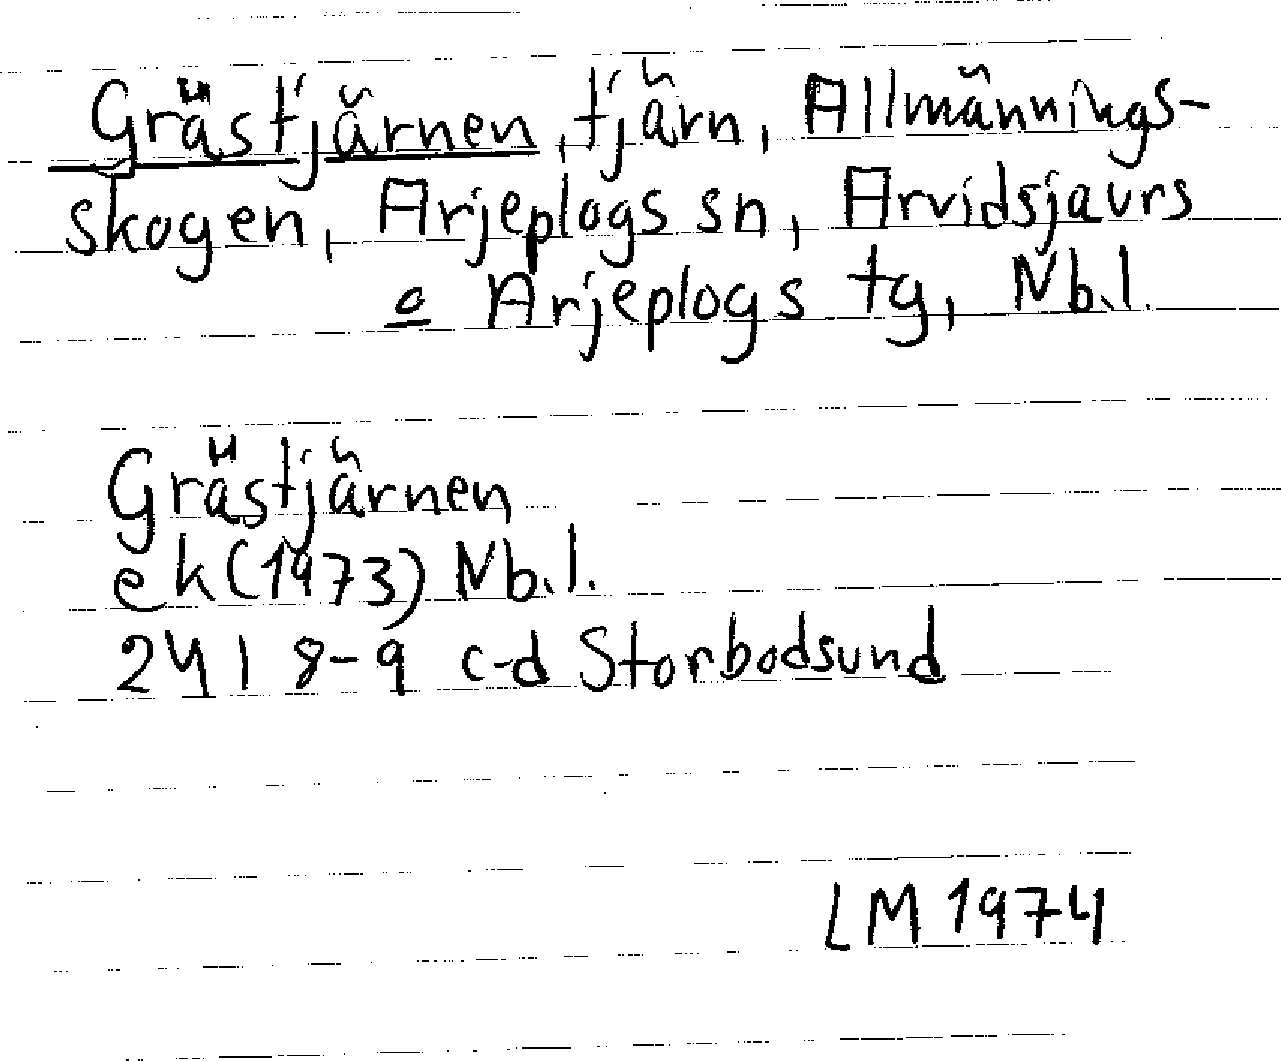 Grästjärnen, tjärn, Allmännings-
skogen, Arjeplogs sn, Arvidsjaurs
o Arjeplogs tg, Nb.l.
Grästjärnen
ek (1973) Nb.l.
24 I 8-9 c-d Storbodsund
LM 1974